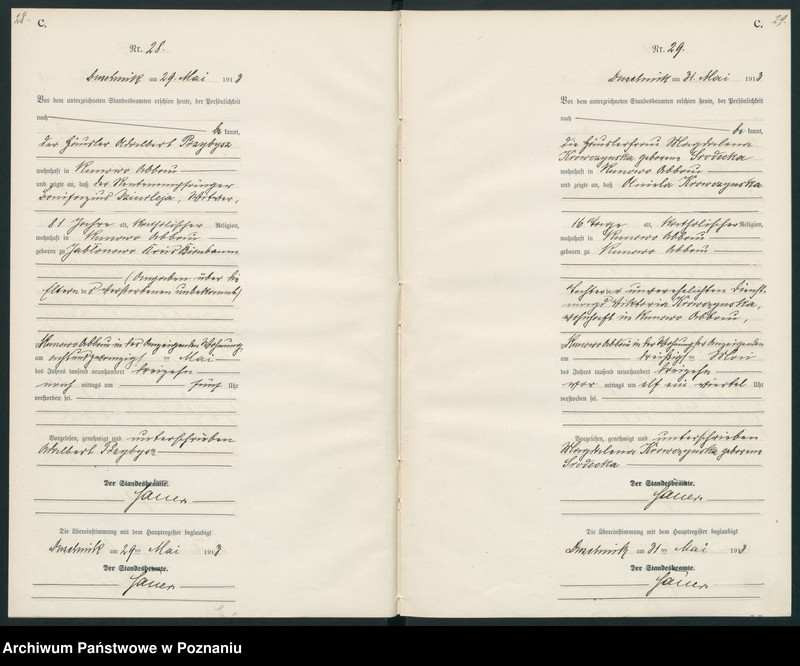 28.
C.
Nr. 28.
Duschnik am 29. Mai 1913
Vor dem unterzeichneten Standesbeamten erschien heute, der Persönlichkeit
nach
be kannt,
der Häusler Adalbert Przybysz
wohnhaft in Kunowo Abbau
und zeigte an, daß der Rentenempfänger
Bonifazius Szurleja, Witwer,
81 Jahre alt, katholischer Religion,
wohnhaft in Kunowo Abbau
geboren zu Jablonowo Kreis Birnbaum
(Angaben über die
Eltern des Verstorbenen unbekannt)
Kunowo Abbau in des Anzeigenden Wohnung
am achtundzwanzigsten Mai
des Jahres tausend neunhundert dreizehn
nach mittags um fünf Uhr
verstorben sei.
Vorgelesen, genehmigt und unterschrieben
Adalbert Przybysz
Der Standesbeamte.
Sauer
Die Übereinstimmung mit dem Hauptregister beglaubigt
Duschnik am 29ten Mai 1913
Der Standesbeamte.
Sauer
C.
29.
Nr. 29.
Duschnik am 31. Mai 1913
Vor dem unterzeichneten Standesbeamten erschien heute, der Persönlichkeit
nach
be kannt,
die Häuslerfrau Magdalena
Krawczynska geborene Srodecka
wohnhaft in Kunowo Abbau
und zeigte an, daß Aniela Krawczynska
16 Tage alt, katholischer Religion,
wohnhaft in Kunowo Abbau
geboren zu Kunowo Abbau
Tochter der unverehelichten Dienst-
magd Viktoria Krawczynska,
wohnhaft in Kunowo Abbau,
Kunowo Abbau in der Wohnung der Anzeigenden
am dreißigsten Mai
des Jahres tausend neunhundert dreizehn
vor mittags um elf ein viertel Uhr
verstorben sei.
Vorgelesen, genehmigt und unterschrieben
Magdalena Krawczynska geborene
Srodecka
Der Standesbeamte.
Sauer
Die Übereinstimmung mit dem Hauptregister beglaubigt
Duschnik am 31ten Mai 1913
Der Standesbeamte.
Sauer
Archiwum Państwowe w Poznaniu